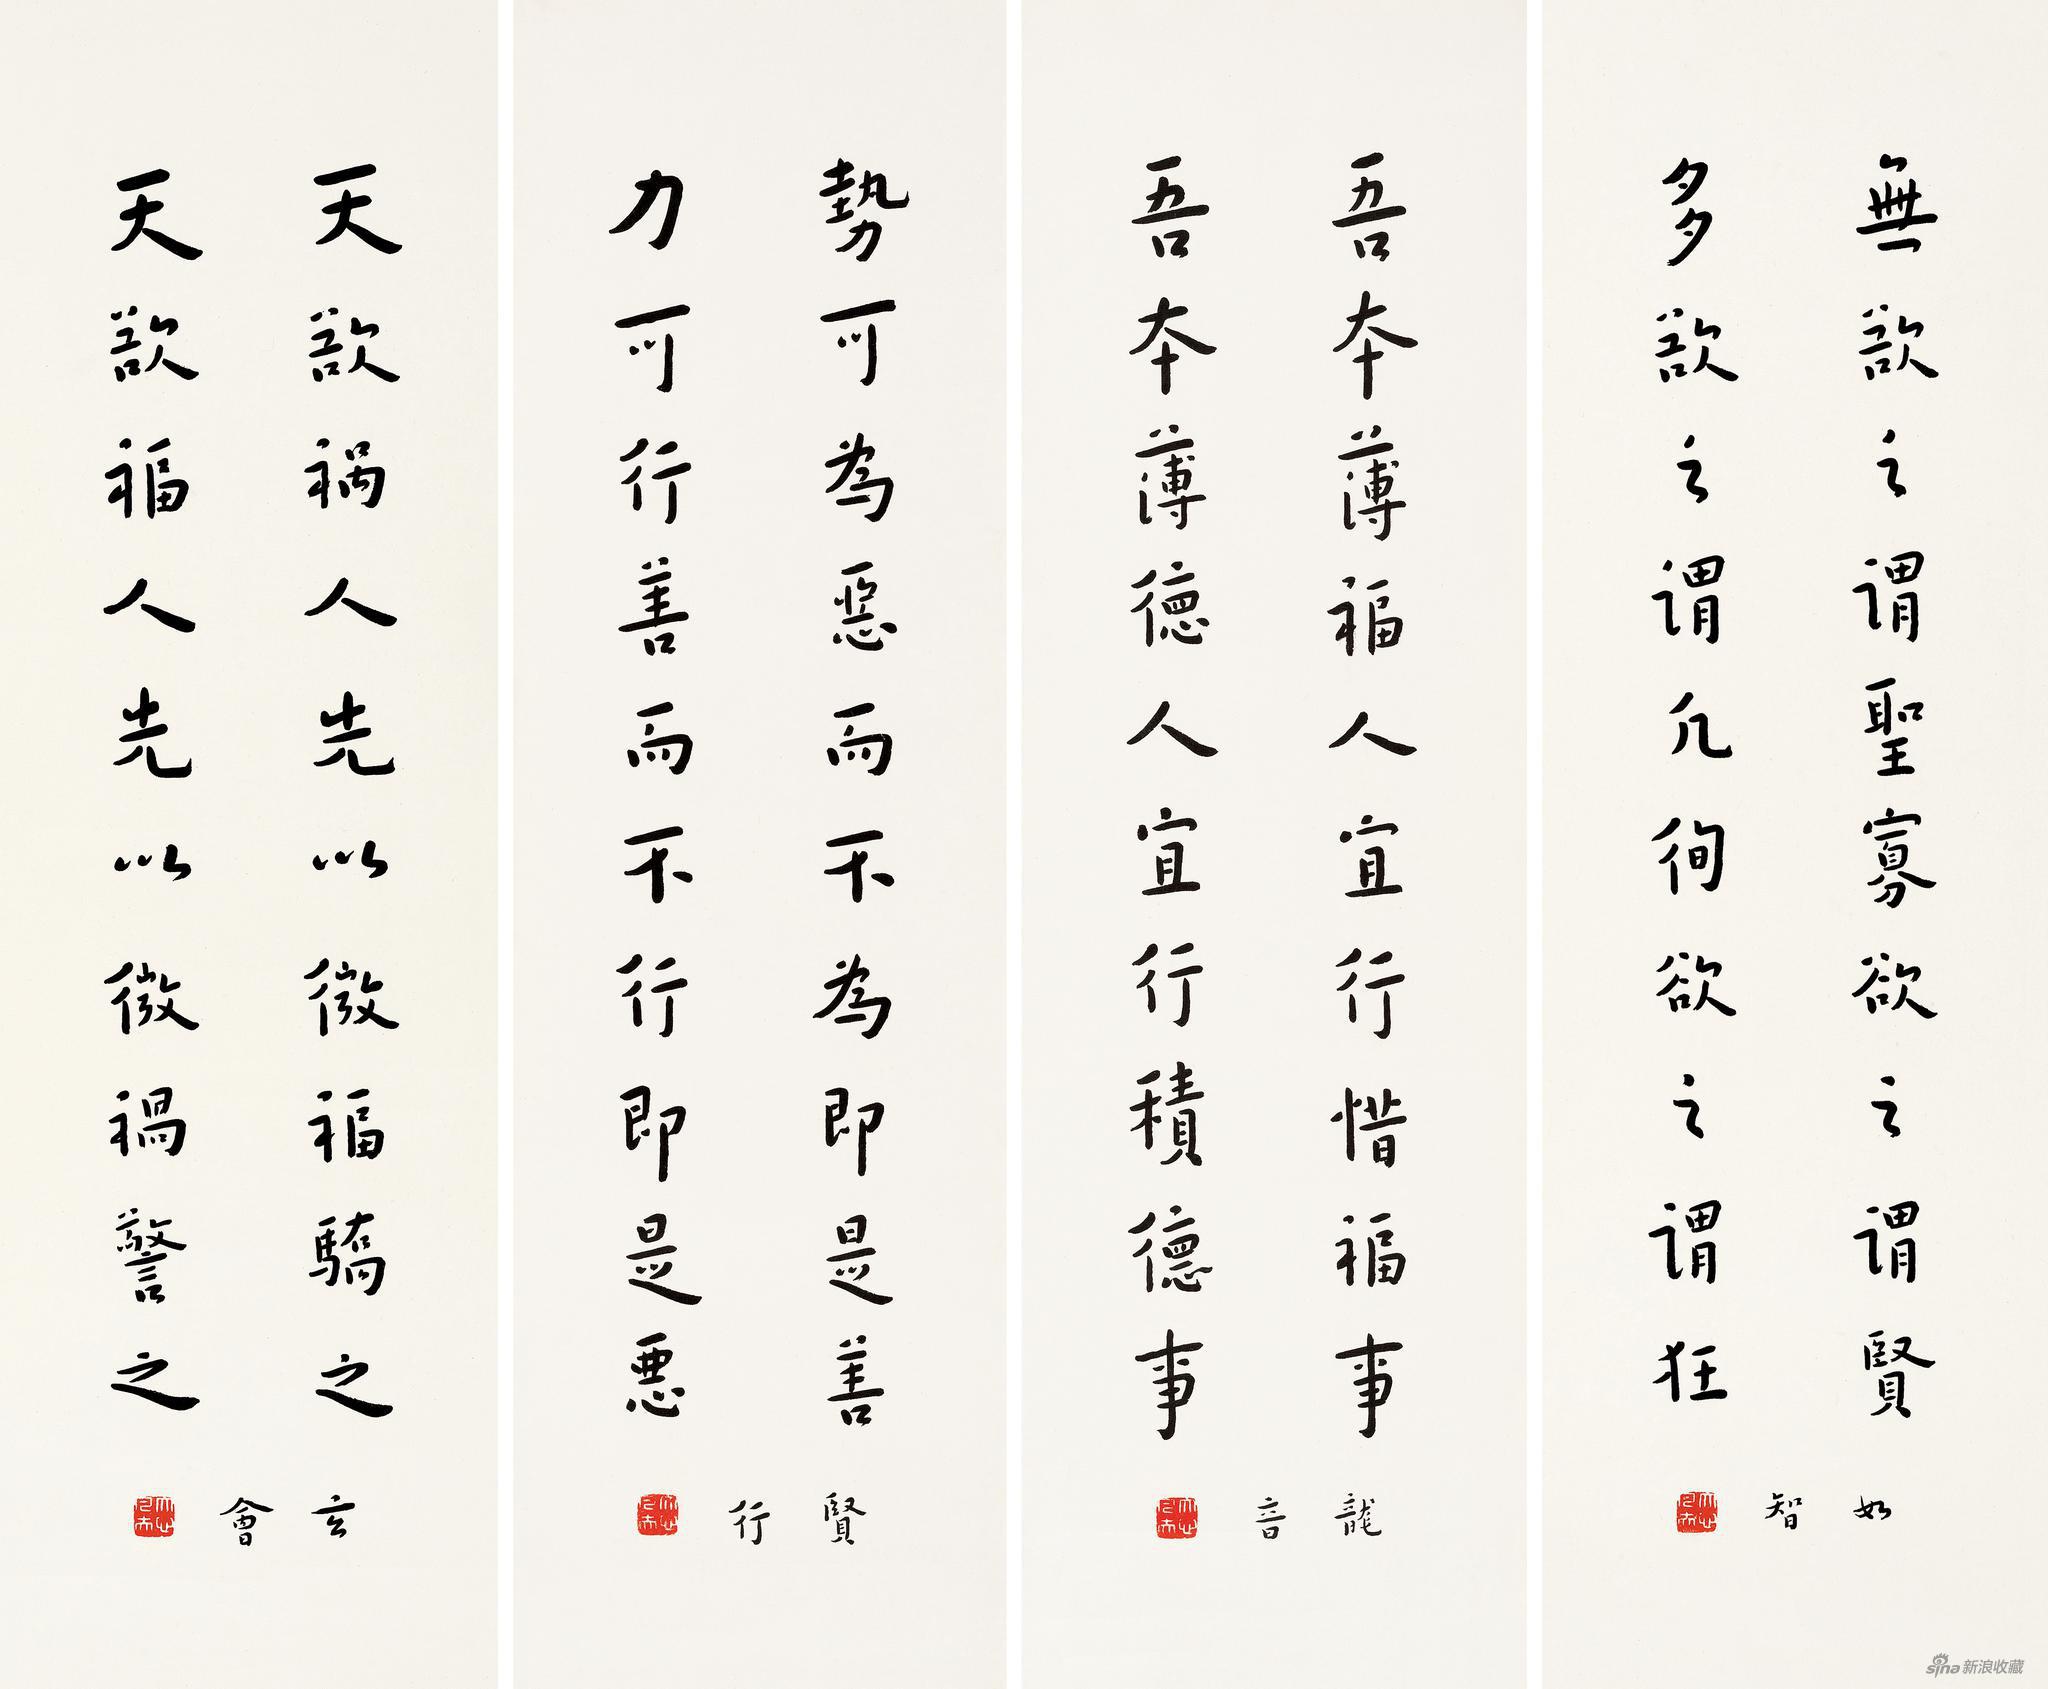 無欲之謂聖寡欲之謂賢
多欲之謂凡徇欲之謂狂
如智
吾本薄福人宜行惜福事
吾本薄德人宜行積德事
龍音
勢可為惡而不為即是善
力可行善而不行即是惡
賢行
天欲禍人先以微福驕之
天欲福人先以微禍警之
玄會
sina新浪收藏